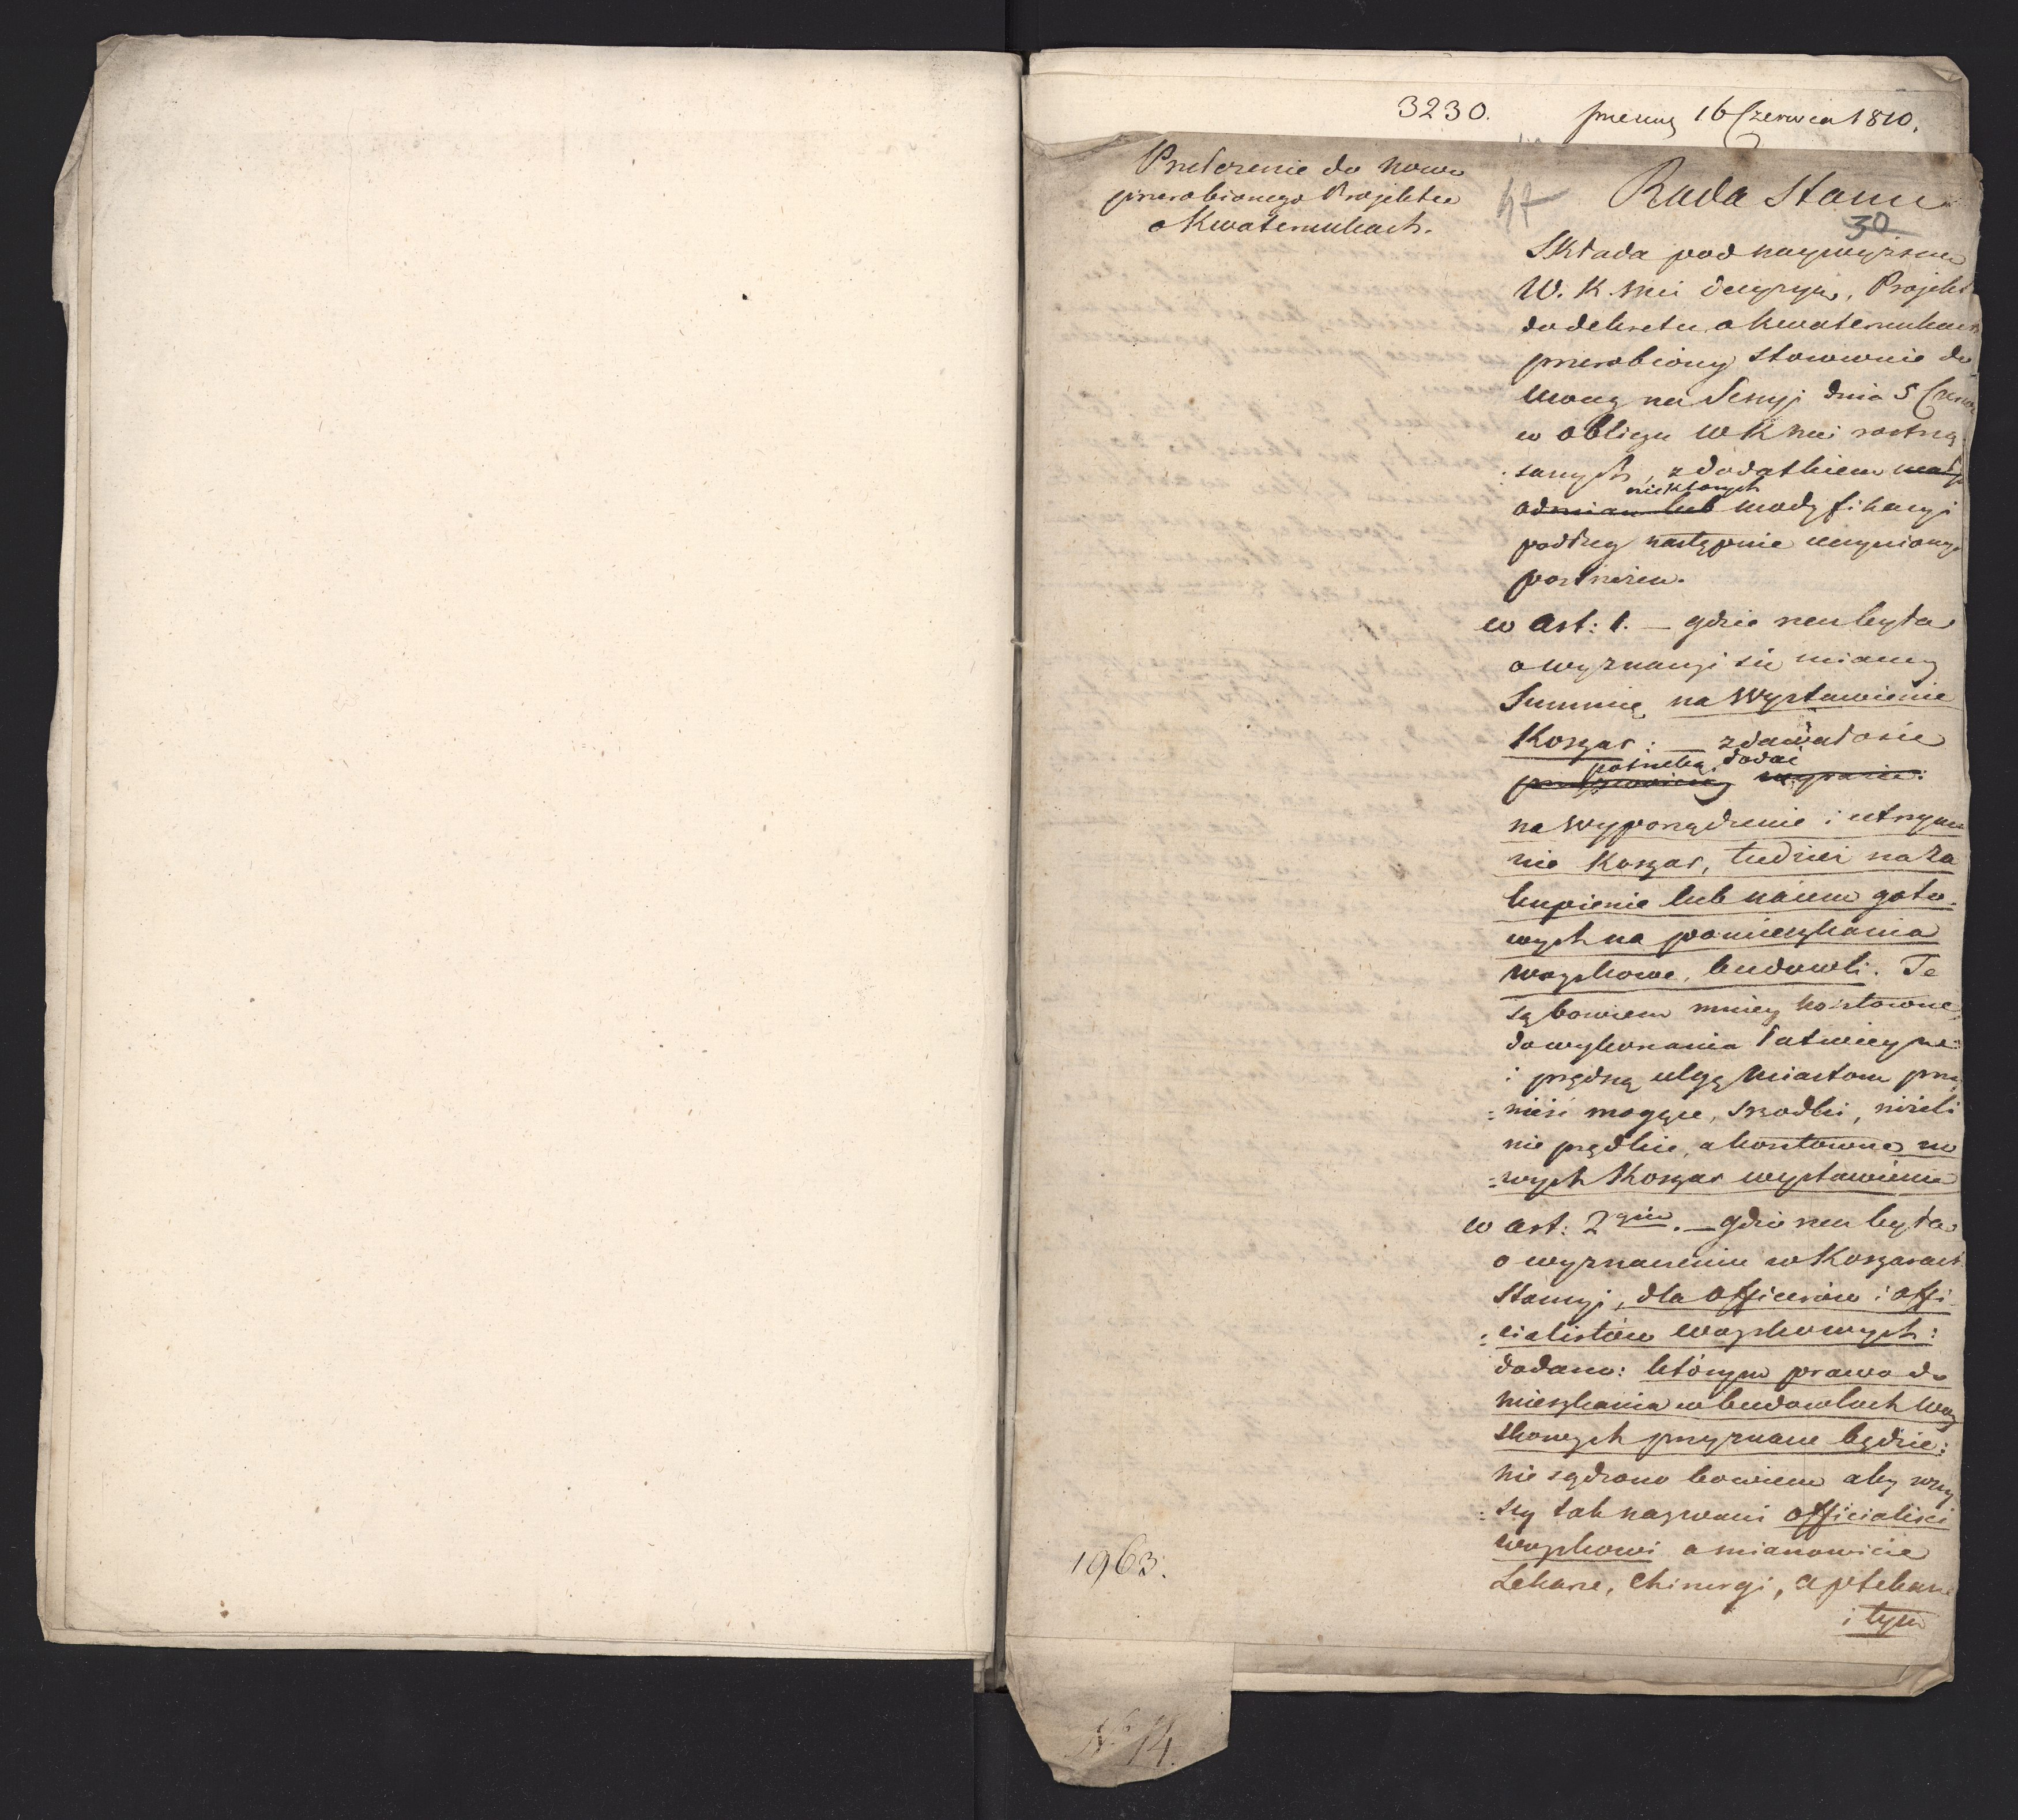 3230.
16 Czerwca 1810.
Przełożenie do nowo
przerobionego Projektu
o Kwaterunkach.
Rada Stanu
30
Składa pod naywyższą
W. K. Mci decyzyą, Projekt
do dekretu o kwaterunkach
przerobiony stosownie do
uwag na Sessyi dnia 5 Czerwca
w obliczu W K Mci roztrzą-
sanych, z dodatkiem
niektórych
odmian lub modyfikacyi
podług następnie uczynionych
postrzeżeń.
w Art: 1. — gdzie rzecz była
o wyznaczyć się mianey
Summie na wystawienie
Koszar: — zdawało się
potrzebą dodać
na wyporządzenie i utrzyma
nie Koszar, tudzież na za
kupienie lub naiem goto-
wych na pomieszkania
woyskowe, budowli. Te
są bowiem mniey kosztowne
do wykonania łatwieysze
i prędszą ulgę miastom przy
=nieść mogące, srzodki, niżeli
nie prędkie, a kosztowne no
=wych Koszar wystawienie
w Art: 2gim. — gdzie rzecz była
o wyznaczeniu w Koszarach
Stancyi, dla Officerów i offi-
=cialistów woyskowych:
dodano: którym prawo do
mieszkania w budowlach woy
skowych przyznane będzie:
nie sądzono bowiem aby wszy
=scy tak nazwani officialiści
woyskowi a mianowicie
Lekarze, Chirurgi, Aptekarze
i tym
1963.
No 14.